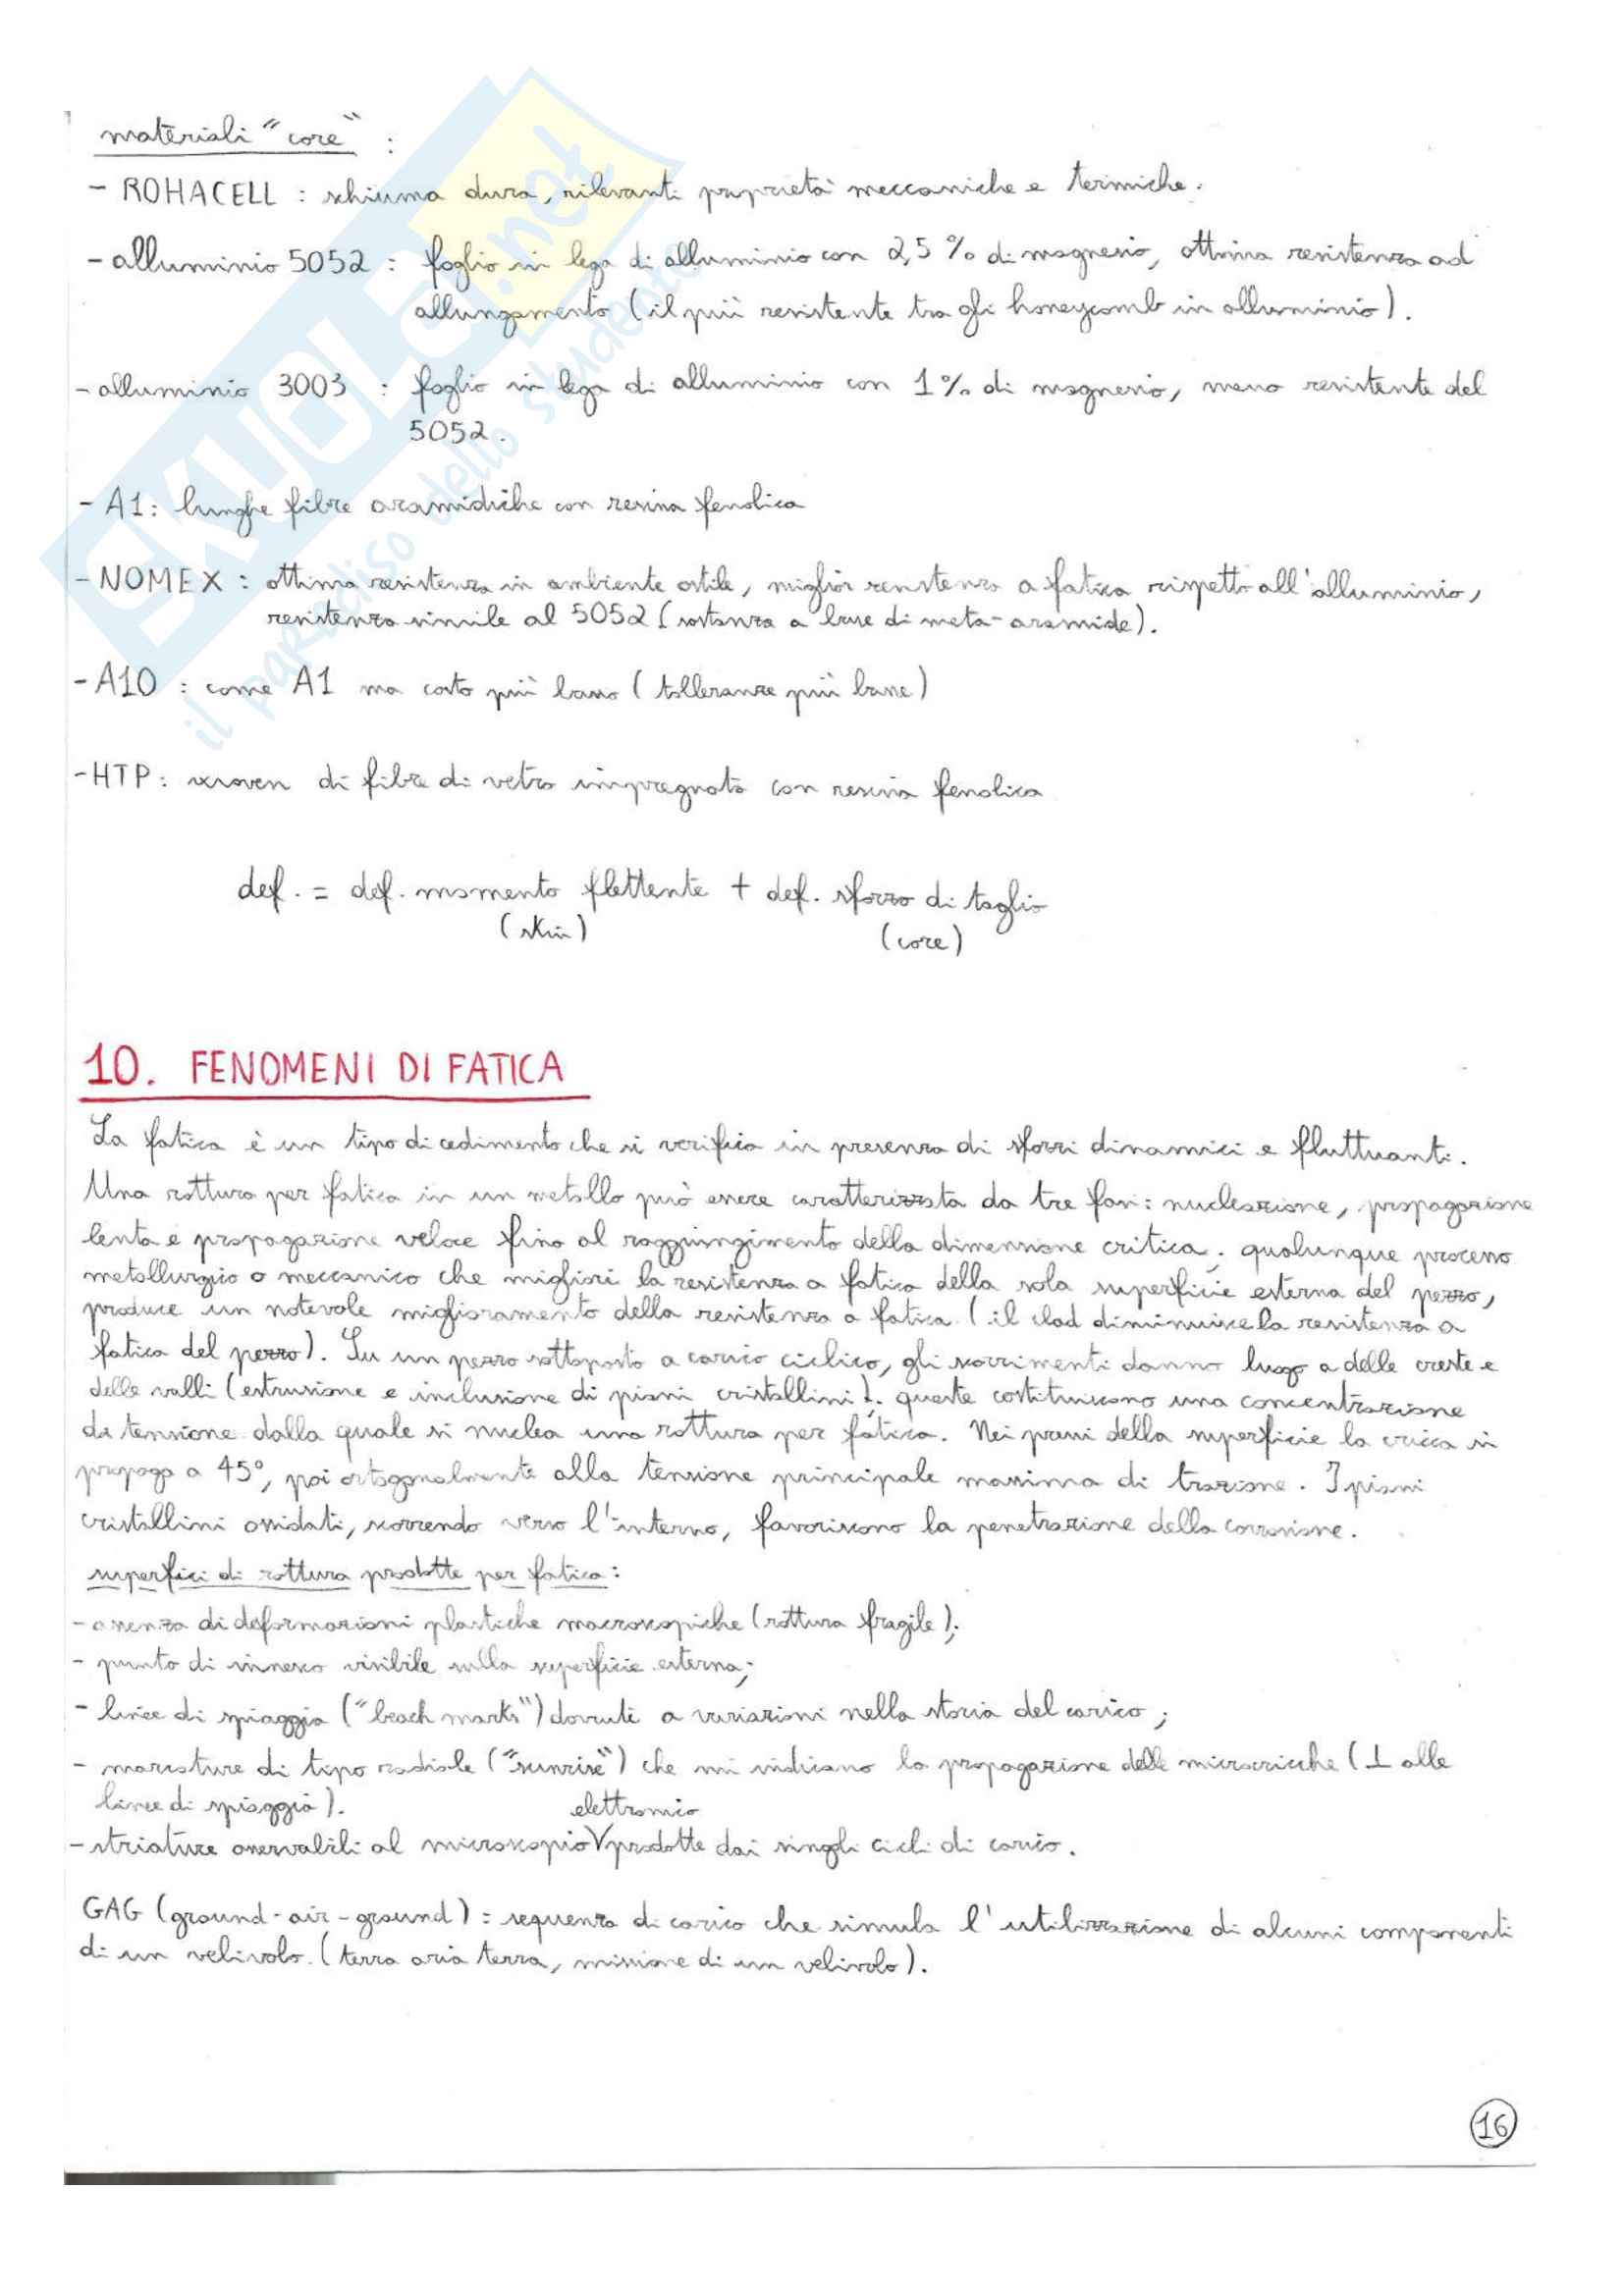 materiali "core" :
- ROHACELL : schiuma dura, rilevanti proprietà meccaniche e termiche.
- alluminio 5052 : foglio in lega di alluminio con 2,5 % di magnesio, ottima resistenza ad
allungamento (il più resistente tra gli honeycomb in alluminio).
- alluminio 3003 : foglio in lega di alluminio con 1% di magnesio, meno resistente del
5052.
- A1: lunghe fibre aramidiche con resina fenolica
- NOMEX : ottima resistenza in ambiente ostile, miglior resistenza a fatica rispetto all'alluminio,
resistenza simile al 5052 (sostanza a base di meta-aramide).
- A10 : come A1 ma costo più basso (tolleranze più basse)
- HTP : woven di fibre di vetro impregnato con resina fenolica
def. = def. momento flettente + def. sforzo di taglio
(skin) (core)
10. FENOMENI DI FATICA
La fatica è un tipo di cedimento che si verifica in presenza di sforzi dinamici e fluttuanti.
Una rottura per fatica in un metallo può essere caratterizzata da tre fasi: nucleazione, propagazione
lenta e propagazione veloce fino al raggiungimento della dimensione critica; qualunque processo
metallurgico o meccanico che migliori la resistenza a fatica della sola superficie esterna del pezzo,
produce un notevole miglioramento della resistenza a fatica. (il clad diminuisce la resistenza a
fatica del pezzo). Su un pezzo sottoposto a carico ciclico, gli scorrimenti danno luogo a delle creste e
delle valli (estrusione e inclusione di piani cristallini); queste costituiscono una concentrazione
di tensione dalla quale si nuclea una rottura per fatica. Nei pressi della superficie la cricca si
propaga a 45°, poi ortogonalmente alla tensione principale massima di trazione. I piani
cristallini ossidati, scorrendo verso l'interno, favoriscono la penetrazione della corrosione.
superfici di rottura prodotte per fatica:
- assenza di deformazioni plastiche macroscopiche (rottura fragile);
- punto di innesco visibile sulla superficie esterna;
- linee di spiaggia ("beach marks") dovute a variazioni nella storia del carico;
- marcature di tipo radiale ("sunrise") che mi indicano la propagazione delle microcricche (⊥ alle
linee di spiaggia).
elettronico
- striature osservabili al microscopio V prodotte dai singoli cicli di carico.
GAG (ground-air-ground) : sequenza di carico che simula l'utilizzazione di alcuni componenti
di un velivolo. (terra aria terra, missione di un velivolo).
16
SKUOLA.net
il paradiso dello studente